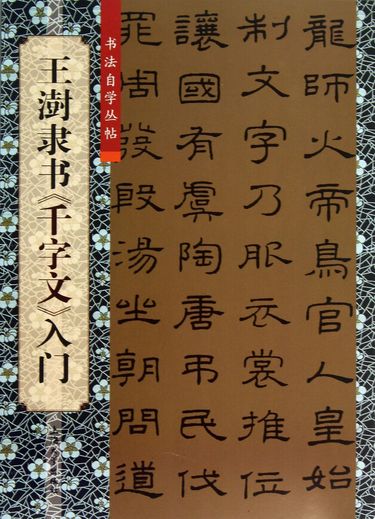 王澍隶书《千字文》入门
书法自学丛帖
龍師火帝鳥官人皇始
制文字乃服衣裳推位
讓國有虞陶唐弔民伐
罪周發殷湯坐朝問道